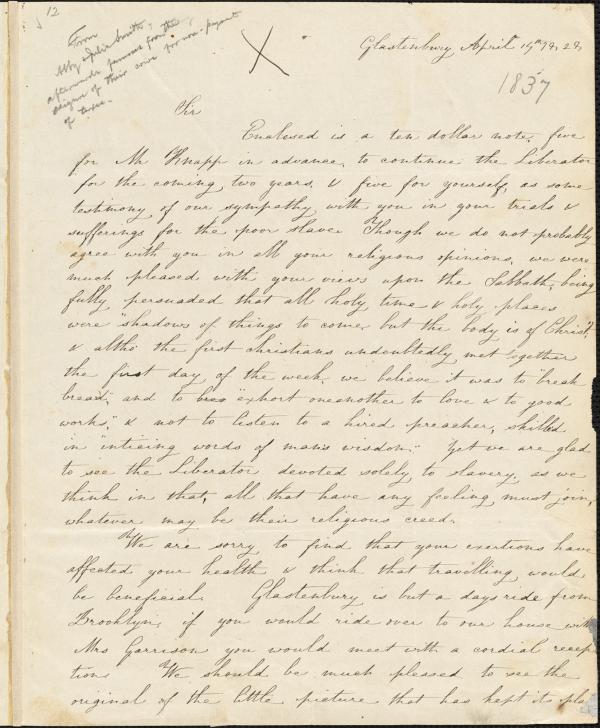 12
From
Abby & Julia Smith,
afterwards famous from the
seizure of their cows for non-payment
of taxes.
Glastenbury April
1837
Sir
Enclosed is a ten dollar note, five
for Mr Knapp in advance, to continue the Liberator
for the coming two years, & five for yourself, as some
testimony of our sympathy with you in your trials &
sufferings for the poor slave. Though we do not probably
agree with you in all your religious opinions, we were
much pleased with your views upon the Sabbath, being
fully persuaded that all holy time & holy places
were "shadows of things to come, but the body is of Christ."
& altho the first christians undoubtedly met together
the first day of the week, we believe it was to "break
bread," and to "exhort oneanother to love & to good
works," & not to listen to a hired preacher, skilled
in "inticing words of mans wisdom." Yet we are glad
to see the Liberator devoted solely to slavery, as we
think in that, all that have any feeling must join,
whatever may be their religious creed.
We are sorry to find that your exertions have
affected your health & think that travelling would
be beneficial. Glastenbury is but a days ride from
Brooklyn, if you would ride over to our house with
Mrs Garrison you would meet with a cordial recep
tion. We should be much plessed to see the
original of the little picture that has kept its pla